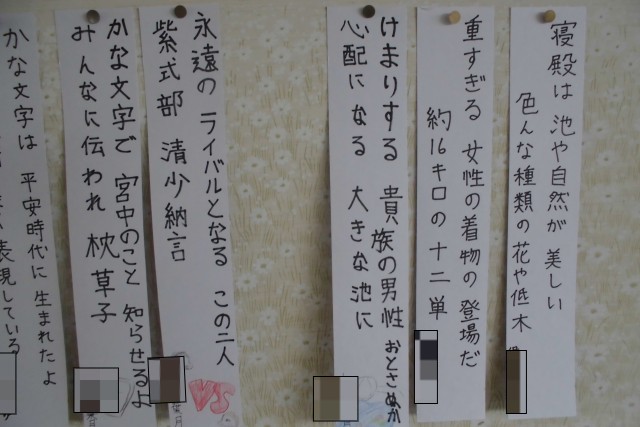 寝殿は 池や自然が 美しい
色んな種類の花や低木
重すぎる 女性の着物の 登場だ
約16キロの 十二単
けまりする 貴族の男性
心配になる 大きな池に おとさぬか
永遠の ライバルとなる この二人
紫式部 清少納言
VS
かな文字で 宮中のこと 知らせるよ
みんなに伝われ 枕草子
かな文字は 平安時代に 生まれたよ
表現している